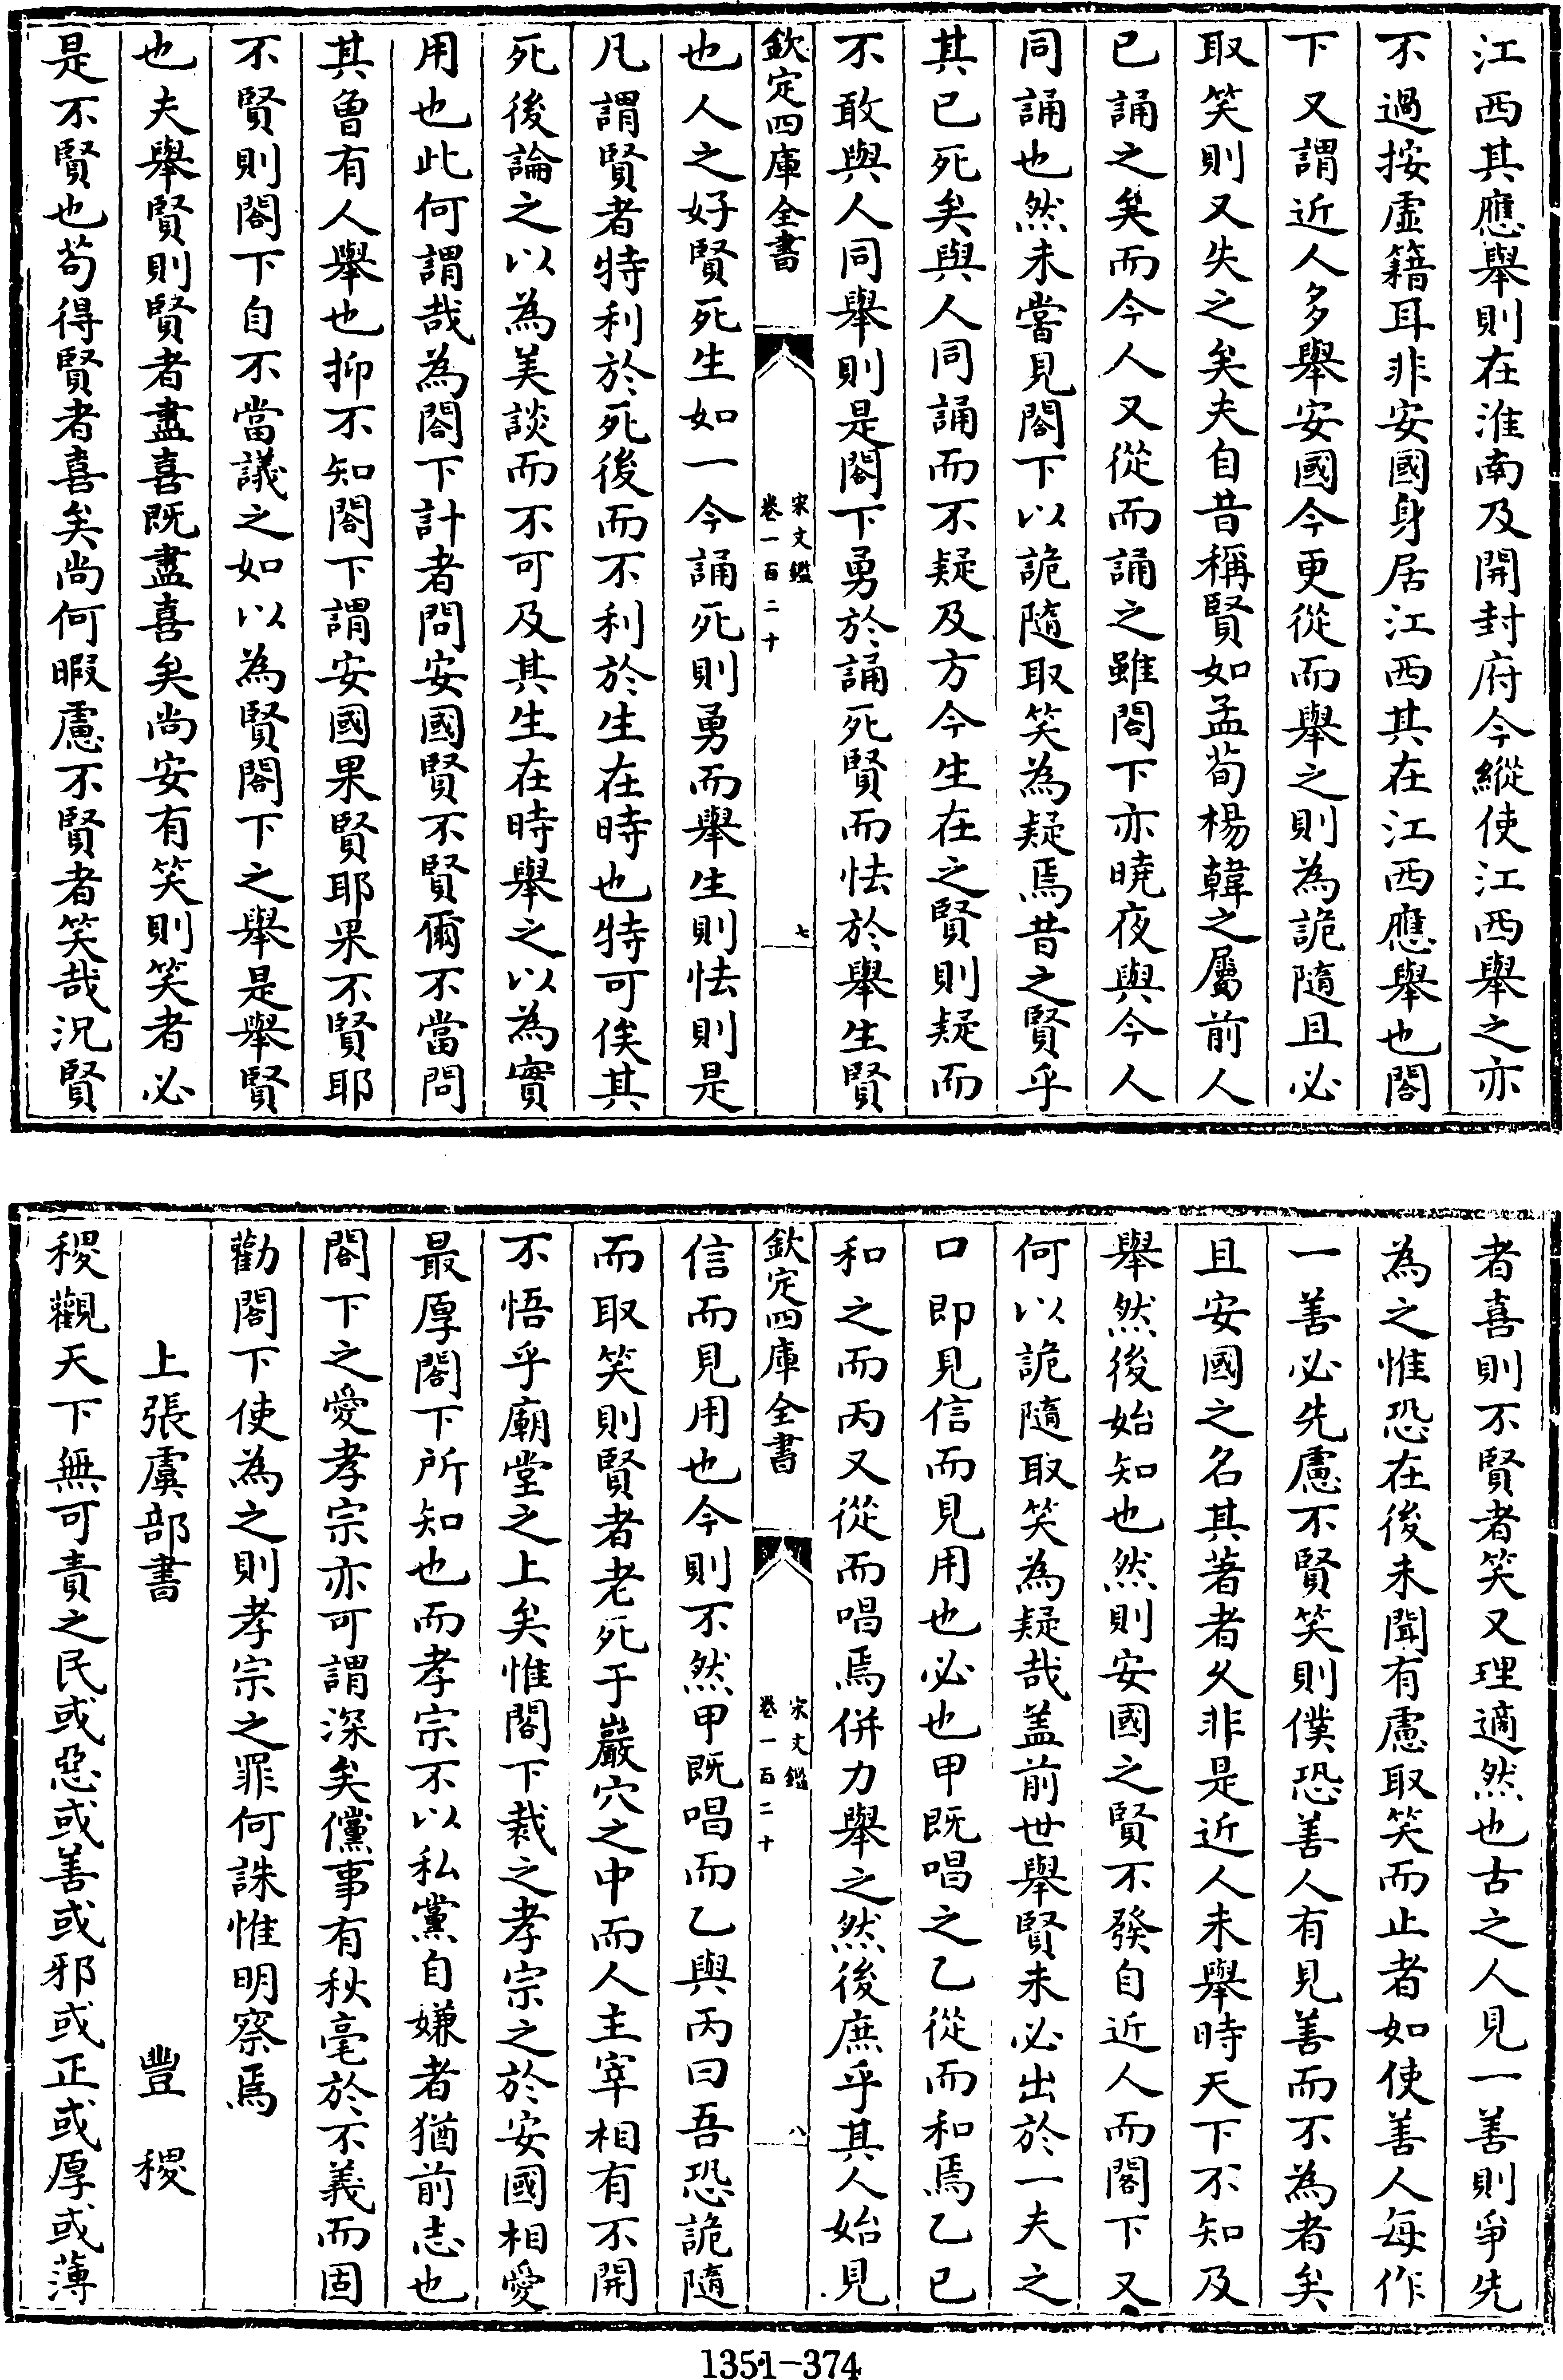 江西其應舉則在淮南及開封府今縱使江西舉之亦
不過按虛籍耳非安國身居江西其在江西應舉也閣
下又謂近人多舉安國今更從而舉之則為詭隨且必
取笑則又失之矣夫自昔稱賢如孟荀楊韓之屬前人
已誦之矣而今人又從而誦之雖閣下亦曉夜與今人
同誦也然未嘗見閣下以詭隨取笑為疑焉昔之賢乎
其已死矣與人同誦而不疑及方今生在之賢則疑而
不敢與人同舉則是閣下勇於誦死賢而怯於舉生賢
欽定四庫全書
宋文鑑
卷一百二十
七
也人之好賢死生如一今誦死則勇而舉生則怯則是
凡謂賢者特利於死後而不利於生在時也特可俟其
死後論之以為美談而不可及其生在時舉之以為實
用也此何謂哉為閣下計者問安國賢不賢爾不當問
其曾有人舉也抑不知閣下謂安國果賢耶果不賢耶
不賢則閣下自不當議之如以為賢閣下之舉是舉賢
也夫舉賢則賢者盡喜既盡喜矣尚安有笑則笑者必
是不賢也苟得賢者喜矣尚何暇慮不賢者笑哉況賢
者喜則不賢者笑又理適然也古之人見一善則爭先
為之惟恐在後未聞有慮取笑而止者如使善人每作
一善必先慮不賢笑則僕恐善人有見善而不為者矣
且安國之名其著者久非是近人未舉時天下不知及
舉然後始知也然則安國之賢不發自近人而閣下又
何以詭隨取笑為疑哉盖前世舉賢未必出於一夫之
口即見信而見用也必也甲既唱之乙從而和焉乙已
和之而丙又從而唱焉併力舉之然後庶乎其人始見
欽定四庫全書
宋文鑑
卷一百二十
八
信而見用也今則不然甲既唱而乙與丙曰吾恐詭隨
而取笑則賢者老死于巖穴之中而人主宰相有不開
不悟乎廟堂之上矣惟閣下裁之孝宗之於安國相愛
最厚閣下所知也而孝宗不以私黨自嫌者猶前志也
閣下之愛孝宗亦可謂深矣儻事有秋毫於不義而固
勸閣下使為之則孝宗之罪何誅惟明察焉
上張虞部書　　　　　豐稷
稷觀天下無可責之民或惡或善或邪或正或厚或薄
1351-374